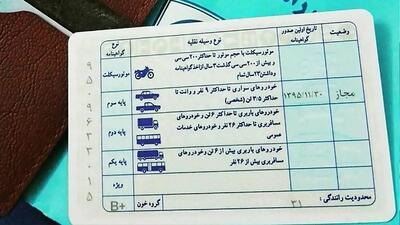 نوع گواهینامه
نوع وسیله نقلیه
تاریخ اولین صدور گواهینامه
وضعیت
موتورسیکلت
موتورسیکلت با حجم موتور تا حداکثر ۲۰۰ سی سی
و بیش از ۲۰۰ سی سی گذشت ۳ سال از اخذ گواهینامه
وداشتن ۲۳ سال تمام
پایه سوم
خودروهای سواری تا حداکثر ۹ نفر و وانت تا
حداکثر ۳/۵ تن (شخصی)
۱۳۹۵/۱۱/۳۰
مجاز
پایه دوم
خودروهای باربری تا حداکثر ۶ تن و خودروهای
مسافربری تا حداکثر ۲۶ نفر و خودروهای خدمات
عمومی
پایه یکم
خودروهای باربری بیش از ۶ تن و خودروهای
مسافربری بیش از ۲۶ نفر
ویژه
محدودیت رانندگی : ۳۱
گروه خون : B+